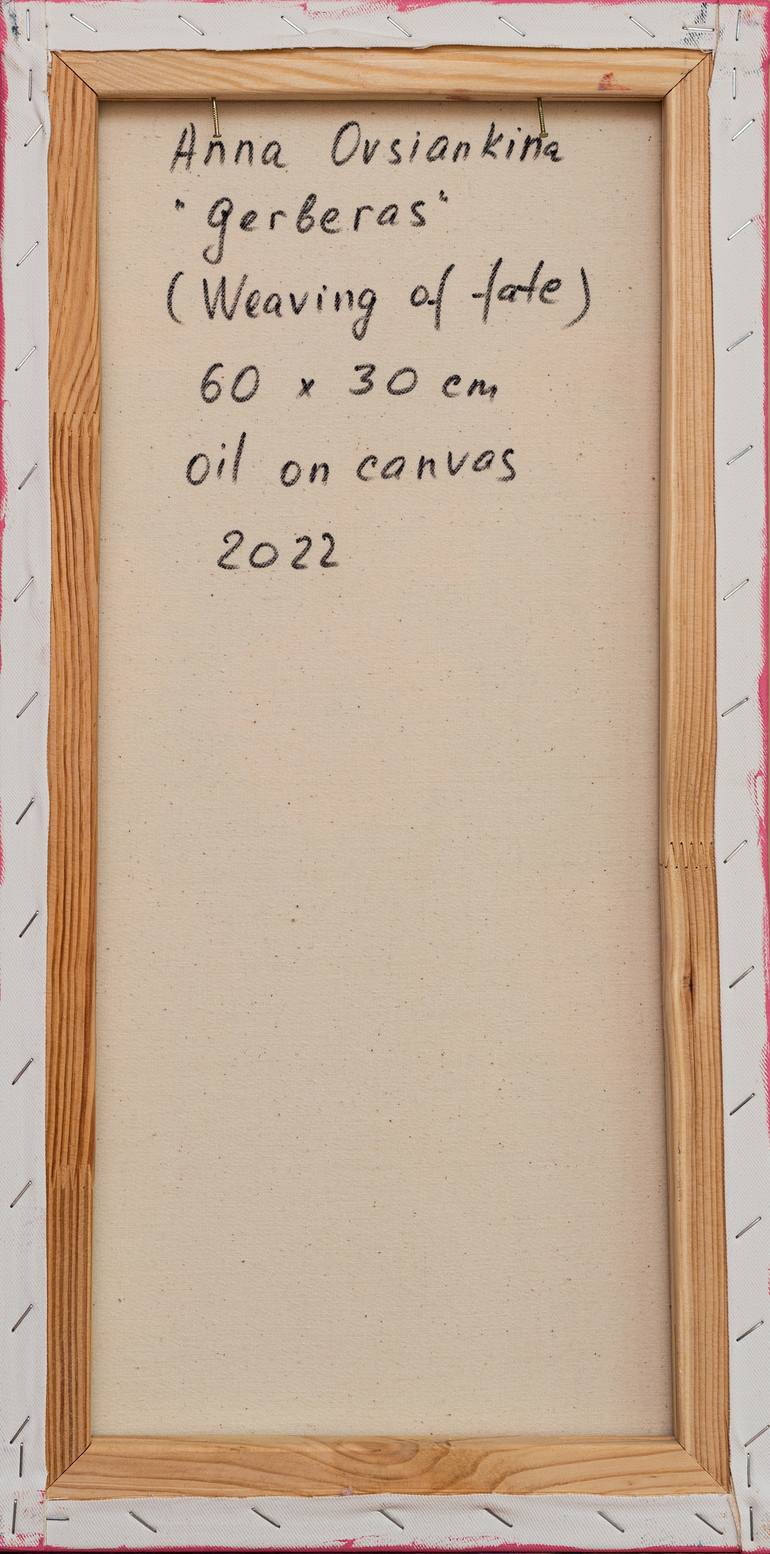 Anna Ovsiankina
"gerberas"
(Weaving of fate)
60 x 30 cm
oil on canvas
2022